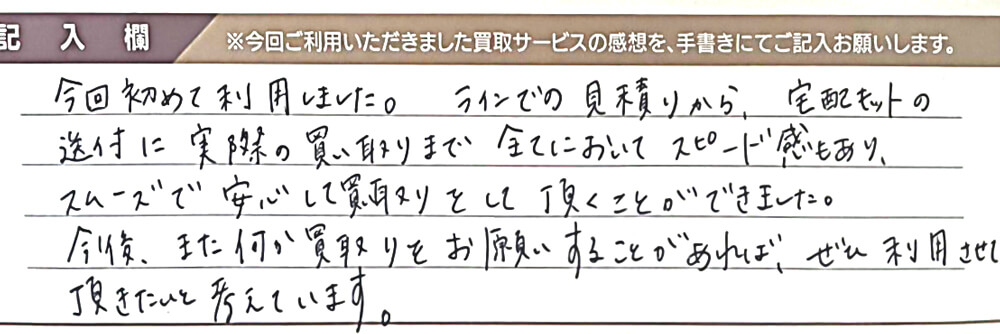 記入欄
※今回ご利用いただきました買取サービスの感想を、手書きにてご記入お願いします。
今回初めて利用しました。 ラインでの見積りから、宅配キットの
送付に実際の買い取りまで全てにおいてスピード感もあり、
スムーズで安心して買取りをして頂くことができました。
今後、また何か買取りをお願いすることがあれば、ぜひ利用させて
頂きたいと考えています。